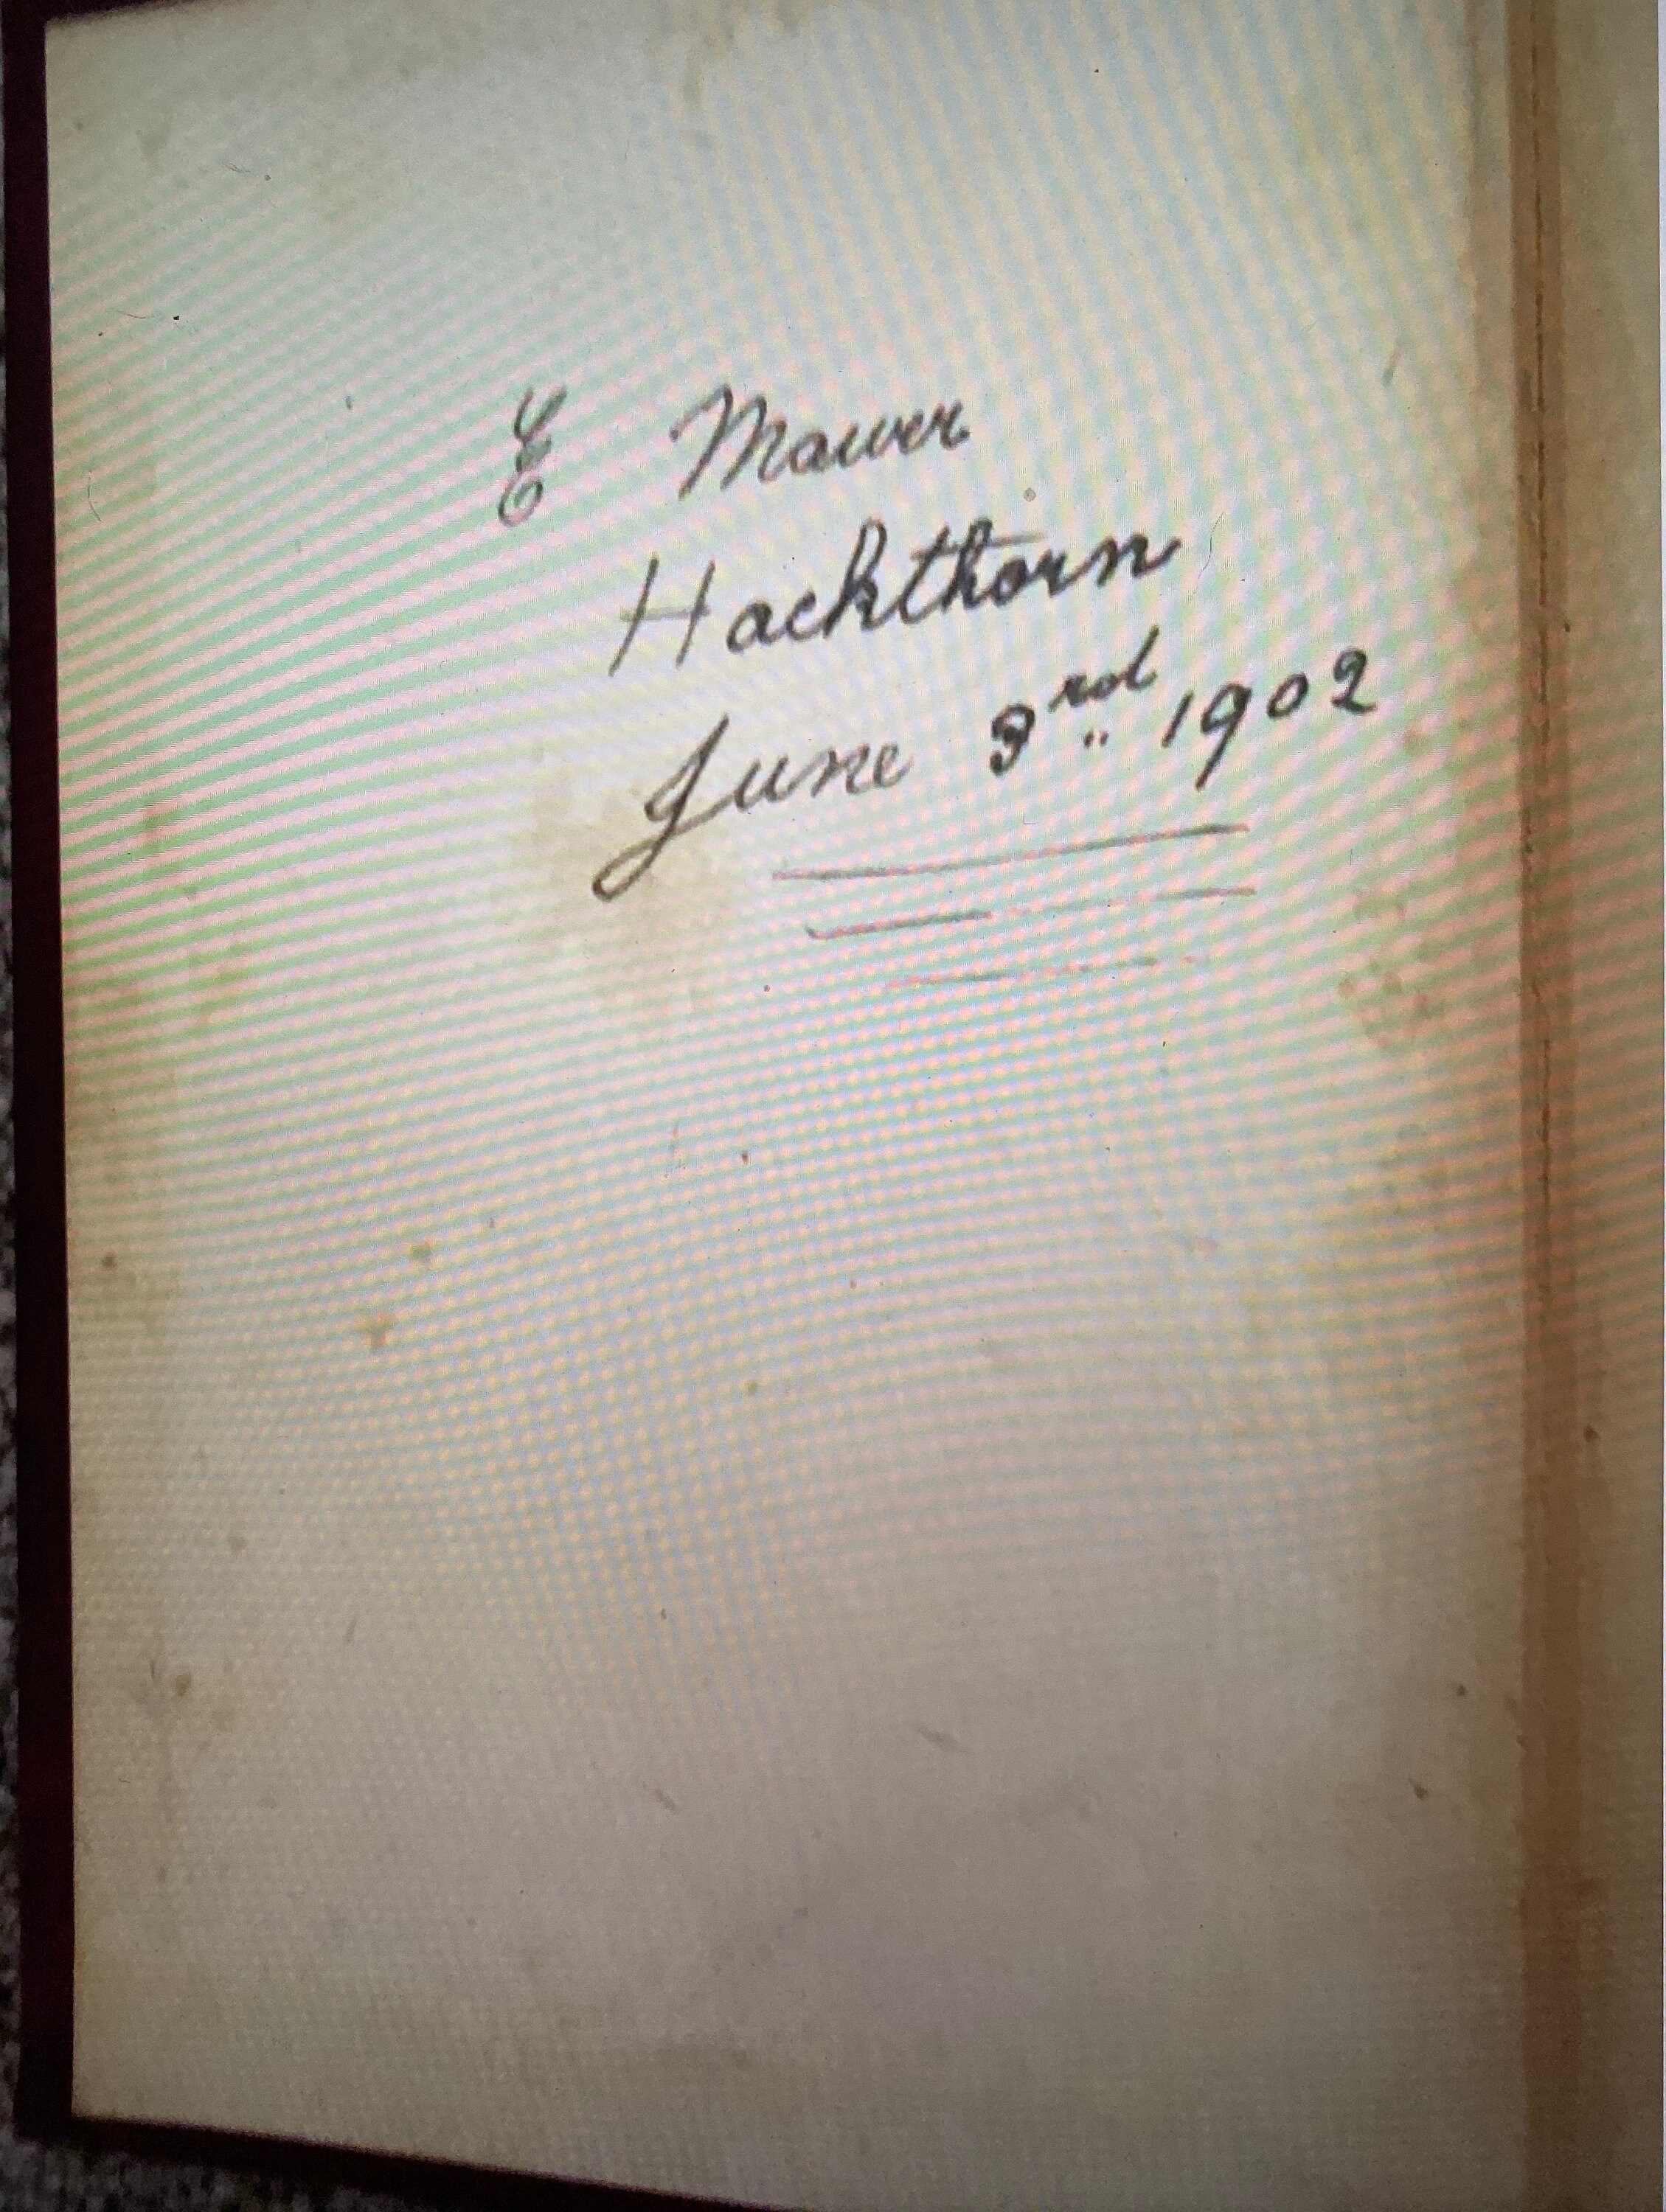 E Mawer
Hackthorn
June 3rd 1902